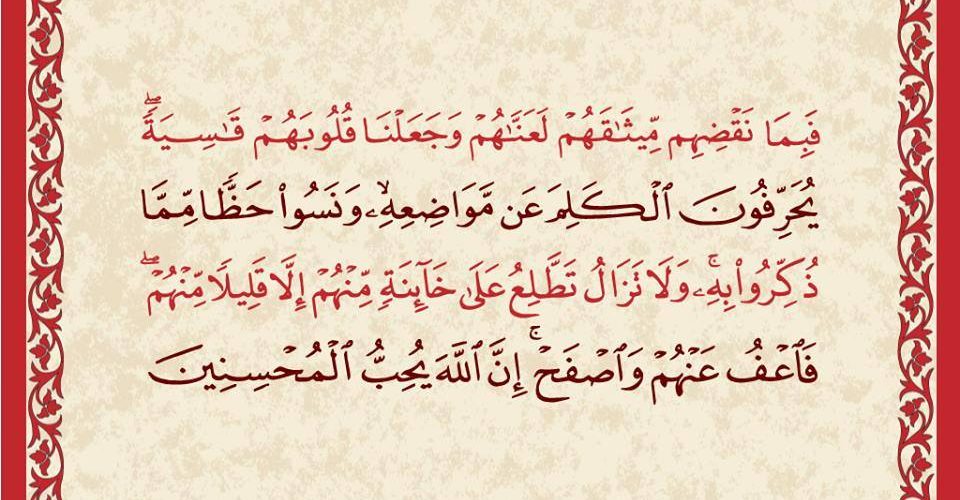 فَبِمَا نَقْضِهِم مِّيثَٰقَهُمْ لَعَنَّٰهُمْ وَجَعَلْنَا قُلُوبَهُمْ قَٰسِيَةًۖ
يُحَرِّفُونَ ٱلْكَلِمَ عَن مَّوَاضِعِهِۦۙ وَنَسُوا۟ حَظًّا مِّمَّا
ذُكِّرُوا۟ بِهِۦۚ وَلَا تَزَالُ تَطَّلِعُ عَلَىٰ خَآئِنَةٍ مِّنْهُمْ إِلَّا قَلِيلًا مِّنْهُمْۖ
فَٱعْفُ عَنْهُمْ وَٱصْفَحْۚ إِنَّ ٱللَّهَ يُحِبُّ ٱلْمُحْسِنِينَ